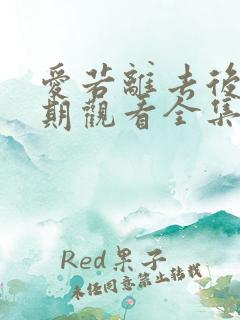 愛若離去後
期觀看全集
Red果子
未经同意禁止转载